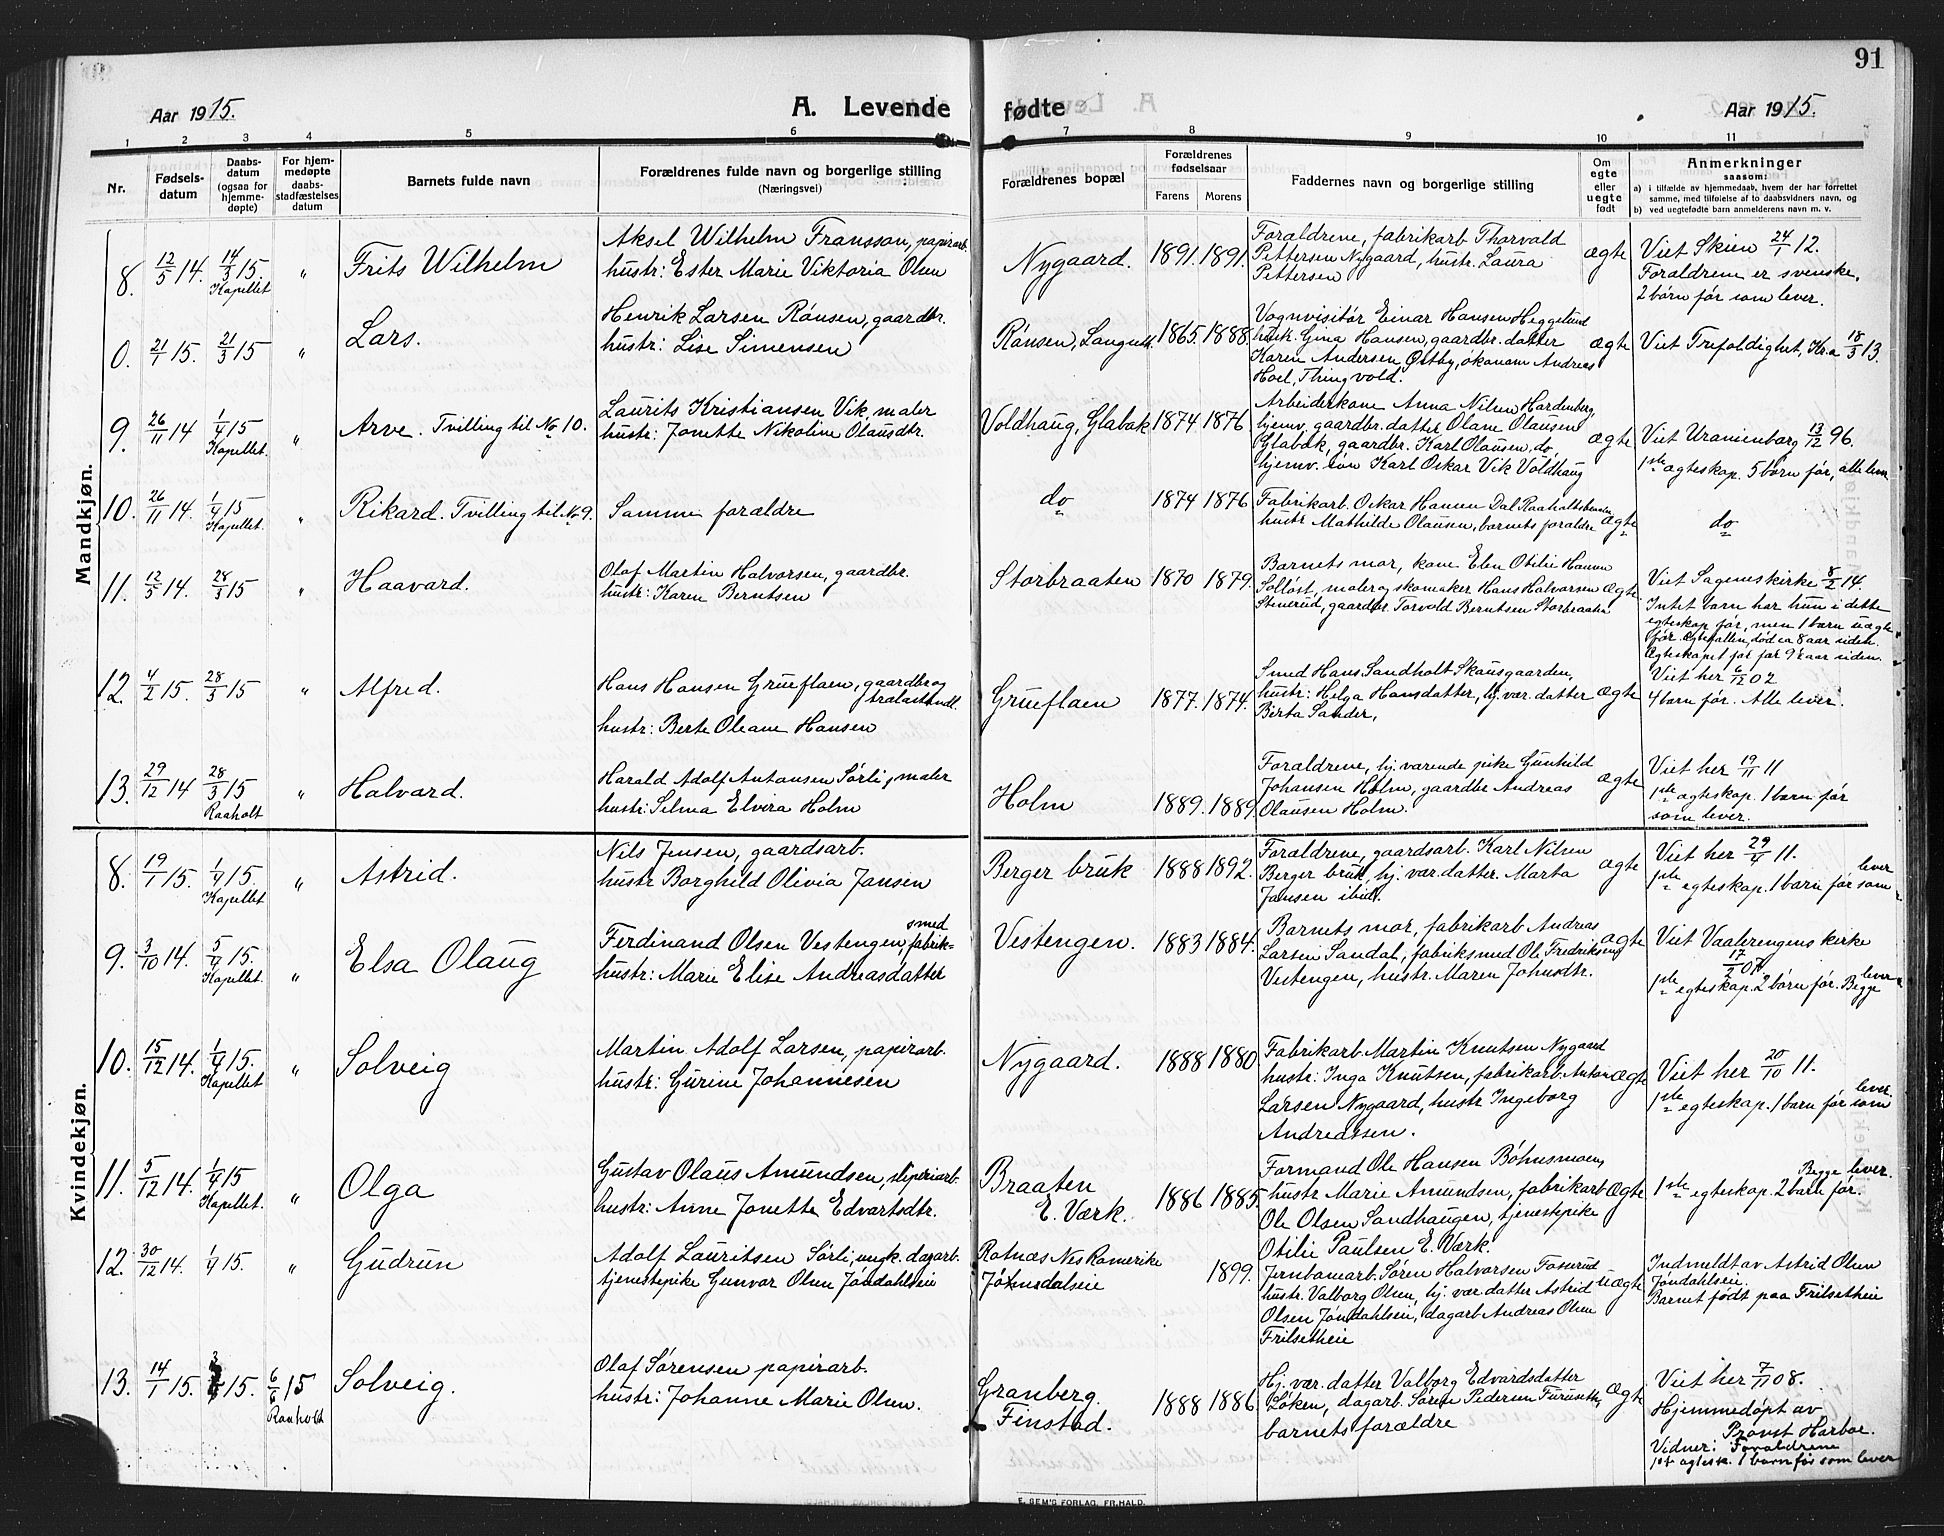 91
Aar 1915.
A. Levende fødte
Aar 1915.
1 2 3 4 5 6 7 8 9 10 11
Nr.
Fødsels-
datum
Daabs-
datum
(ogsaa for
hjemme-
døpte)
For hjem-
medøpte
daabs-
stadfæstelses
datum
Barnets fulde navn
Forældrenes fulde navn og borgerlige stilling
(Næringsvei)
Forældrenes bopæl
Forældrenes
fødselsaar
Farens Morens
Faddernes navn og borgerlige stilling
Om
egte
eller
uegte
født
Anmerkninger
saasom:
a) i tilfælde av hjemmedaab, hvem der har forrettet
samme, med tilføielse af to daabsvidners navn, og
b) ved uegtefødte barn anmelderens navn m. v.
Mandkjøn.
8. 12/5 14. 14/3 15. Kapellet " Frits Wilhelm
Aksel Wilhelm Fransson, papirarb.
hustr: Ester Marie Viktoria Olsen
Nygaard. 1891. 1891.
Forældrene, fabrikarb Thorvald
Pettersen Nygaard, hustr. Laura
Pettersen
Ægte
Viet Skien 24/1 12.
Forældrene er svenske.
2 børn før som lever.
0. 21/1 15. 21/3 15 " Lars.
Henrik Larsen Rønsen, gaardbr.
hustr: Lise Simensen
Rønsen, Langset. 1865. 1888.
Vognvisitør Einar Hansen Heggelund
hustr. Gina Hansen, gaardbr. datter
Karen Andersen Østby, økonom Andreas
Hoel, Thingvold.
Ægte
Viet Trefoldighet, Kr.a 18/3 13.
9. 26/11 14 1/4 15 Kapellet. " Arve. Tvilling til No 10.
Laurits Kristiansen Vik, maler
hustr: Jonette Nikoline Olausdtr.
Voldhaug, Glabak 1874. 1876
Arbeiderkone Anna Nilsen Hardenberg,
hjemv. gaardbr. datter Olane Olausen
Glabak, gaardbr. Karl Olausen, do,
hjemv. søn Karl Oskar Vik Voldhaug
Ægte
Viet Uranienborg 13/12 96.
1ste ægteskap. 5 børn før, alle lever
10. 26/11 14. 1/4 15 Kapellet. " Rikard. Tvilling til No 9.
Samme forældre
do 1874 1876
Fabrikarb. Oskar Hansen Dal Raaholtsbraaten
hustr Mathilde Olausen, barnets forældre
Ægte
do
11. 12/3 14. 28/3 15 " Haavard.
Olaf Martin Halvorsen, gaardbr.
hustr: Karen Berntsen
Storbraaten 1870 1879.
Barnets mor, kone Elen Otilie Hansen
Solløst, maler og skomaker Hans Halvorsen
Stenerud, gaardbr. Torvold Berntsen Storbraaten
Ægte.
Viet Sageneskirke 8/2 14.
Intet barn har hun i dette
egteskap før, men 1 barn uægte
før egteskapet, død ca 8 aar siden.
12. 4/2 15. 28/3 15 " Alfred.
Hans Hansen Grueflaen, gaardbr og
trælasthandl.
hustr: Berte Oleane Hansen
Grueflaen 1877. 1874.
Smed Hans Sandholt Skausgaarden,
hustr: Helga Hansdatter, hj. vær. datter
Birta Sander,
Ægte
Viet her 6/12 02
4 barn før. Alle lever.
13. 29/12 14 28/3 15 Raaholt " Halvard.
Harald Adolf Antonsen Sørli, maler
hustr: Selma Elvira Holm
Holm 1889. 1889.
Forældrene, hj. værende pike Gunhild
Johansen Holm, gaardbr Andreas
Olausen Holm.
Ægte
Viet her 19/11 11
1ste ægteskap. 1 barn før
som lever.
Kvindekjøn.
8. 19/1 15. 1/4 15. Kapellet " Astrid.
Nils Jensen, gaardsarb.
hustr Borghild Olivia Jansen
Berger bruk 1888 1892.
Forældrene, gaardsarb. Karl Nilsen
Berger bruk, hj. vær. datter. Marta
Jansen ibid.
Ægte
Viet her 29/4 11.
1ste egteskap. 1 barn før som lever
9. 3/10 14. 5/4 15. Kapellet. " Elsa Olaug
Ferdinand Olsen Vestengen, fabrik=
smed
hustr: Marie Elise Andreasdatter
Vestengen. 1883 1884.
Barnets mor, fabrikarb Andreas
Larsen Sandal, fabriksmed Ole Fredriksen
Vestengen, hustr. Maren Johnsdtr.
Ægte
Viet Vaalerengens kirke
17/2 07.
1ste egteskap. 2 børn før. Begge lever
10. 15/12 14. 1/4 15. Kapellet " Solveig
Martin Adolf Larsen, papirarb.
hustr: Gurine Johannesen
Nygaard. 1888 1880.
Fabrikarb. Martin Knutsen Nygaard
hustr: Inga Knutsen, fabrikarb. Anton
Larsen Nygaard, hustr Ingeborg
Andreassen.
Ægte
Viet her 20/10 11.
1ste egteskap. 1 barn før som lever.
11. 5/12 14. 1/4 15 Kapellet. " Olga
Gustav Olaus Amundsen, sliperiarb.
hustr: Anne Jonette Edvartsdtr.
Braaten
E. Værk. 1886 1885.
Formand Ole Hansen Bøhnsmoen,
hustr Marie Amundsen, fabrikarb
Ole Olsen Sandhaugen, tjenestepike
Otilie Paulsen E. Værk.
Ægte
1ste egteskap. 2 barn før. Begge lever.
12. 30/12 14. 1/4 15. " Gudrun
Adolf Lauritsen Sørli, ungk. dagarb.
tjenestepike Gunvor Olsen Jøndahlseie
Rotnæs Nes Romerike
Jøhnsdalseie 1899.
Jernbanearb. Søren Halvorsen Fosserud
hustr. Valborg Olsen, hj. vær datter Astrid
Olsen Jøndahlseie, dagarb Andreas Olsen
Frilsetheie
uægte
Indmeldt av Astrid Olsen
Jøndahlseie.
Barnet født paa Frilsetheie
13. 14/1 15. 15. 6/6 15 Raahold Solveig.
Olaf Sørensen papirarb.
hustr: Johanne Marie Olsen.
Granberg.
Finstad. 1888 1886.
Hj. vær. datter Valborg Edvardsdatter
Løken, dagarb. Søren Pedersen Furuseth,
barnets forældre
Ægte
Viet her 7/11 08.
Hjemmedøpt av
Provst Harboe.
Vidner: Forældrene
1st ægtesk. 1 barn før som lever
E. SEM'S FORLAG, FR.HALD.